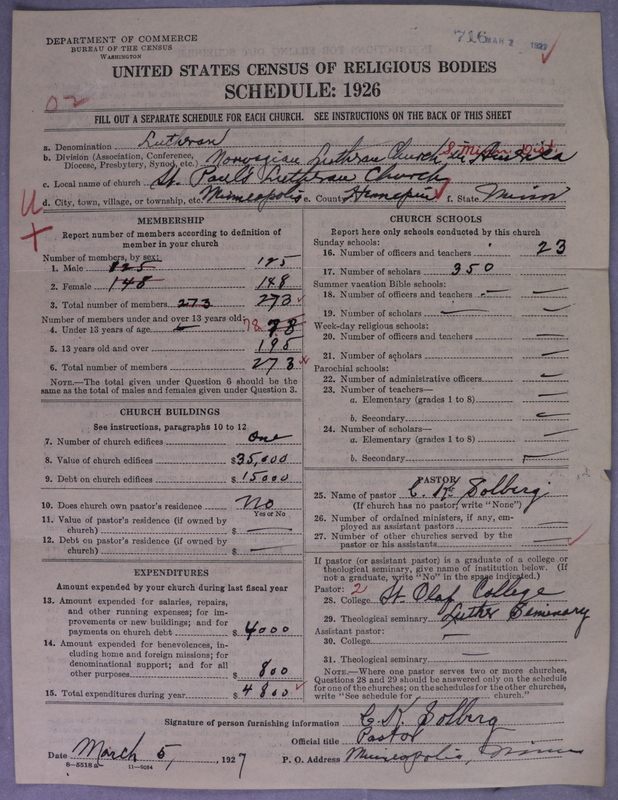 DEPARTMENT OF COMMERCE
BUREAU OF THE CENSUS
WASHINGTON
716 MAR 2 1927
UNITED STATES CENSUS OF RELIGIOUS BODIES
SCHEDULE: 1926
02
FILL OUT A SEPARATE SCHEDULE FOR EACH CHURCH. SEE INSTRUCTIONS ON THE BACK OF THIS SHEET
a. Denomination Lutheran
b. Division (Association, Conference, Diocese, Presbytery, Synod, etc.) Norwegian Lutheran Church in America
c. Local name of church St. Paul's Lutheran Church
d. City, town, village, or township, etc. Minneapolis e. County Hennepin f. State Minn
MEMBERSHIP
Report number of members according to definition of
member in your church
Number of members, by sex:
1. Male 125 125
2. Female 148 148
3. Total number of members 273 273
Number of members under and over 13 years old:
4. Under 13 years of age 78 78
5. 13 years old and over 195
6. Total number of members 273
NOTE.—The total given under Question 6 should be the
same as the total of males and females given under Question 3.
CHURCH BUILDINGS
See instructions, paragraphs 10 to 12
7. Number of church edifices One
8. Value of church edifices $35,000
9. Debt on church edifices $15000
10. Does church own pastor's residence? No
Yes or No
11. Value of pastor's residence (if owned by
church) $ —
12. Debt on pastor's residence (if owned by
church) $ —
EXPENDITURES
Amount expended by your church during last fiscal year
13. Amount expended for salaries, repairs,
and other running expenses; for im-
provements or new buildings; and for
payments on church debt $4000
14. Amount expended for benevolences, in-
cluding home and foreign missions; for
denominational support; and for all
other purposes $800
15. Total expenditures during year $4800
CHURCH SCHOOLS
Report here only schools conducted by this church
Sunday schools:
16. Number of officers and teachers 23
17. Number of scholars 350
Summer vacation Bible schools:
18. Number of officers and teachers —
19. Number of scholars —
Week-day religious schools:
20. Number of officers and teachers —
21. Number of scholars —
Parochial schools:
22. Number of administrative officers —
23. Number of teachers—
a. Elementary (grades 1 to 8) —
b. Secondary —
24. Number of scholars—
a. Elementary (grades 1 to 8) —
b. Secondary —
PASTOR
25. Name of pastor C. K. Solberg
(If church has no pastor, write "None")
26. Number of ordained ministers, if any, em-
ployed as assistant pastors —
27. Number of other churches served by the
pastor or his assistants —
If pastor (or assistant pastor) is a graduate of a college or
theological seminary, give name of institution below. (If
not a graduate, write "No" in the space indicated.)
Pastor: 2
28. College St. Olaf College
29. Theological seminary Luther Seminary
Assistant pastor:
30. College —
31. Theological seminary —
NOTE.—Where one pastor serves two or more churches,
Questions 28 and 29 should be answered only on the schedule
for one of the churches; on the schedules for the other churches,
write "See schedule for church."
Signature of person furnishing information C. K. Solberg
Official title Pastor
Date March 5, 1927 P. O. Address Minneapolis, Minn
8—5518a 11—9084